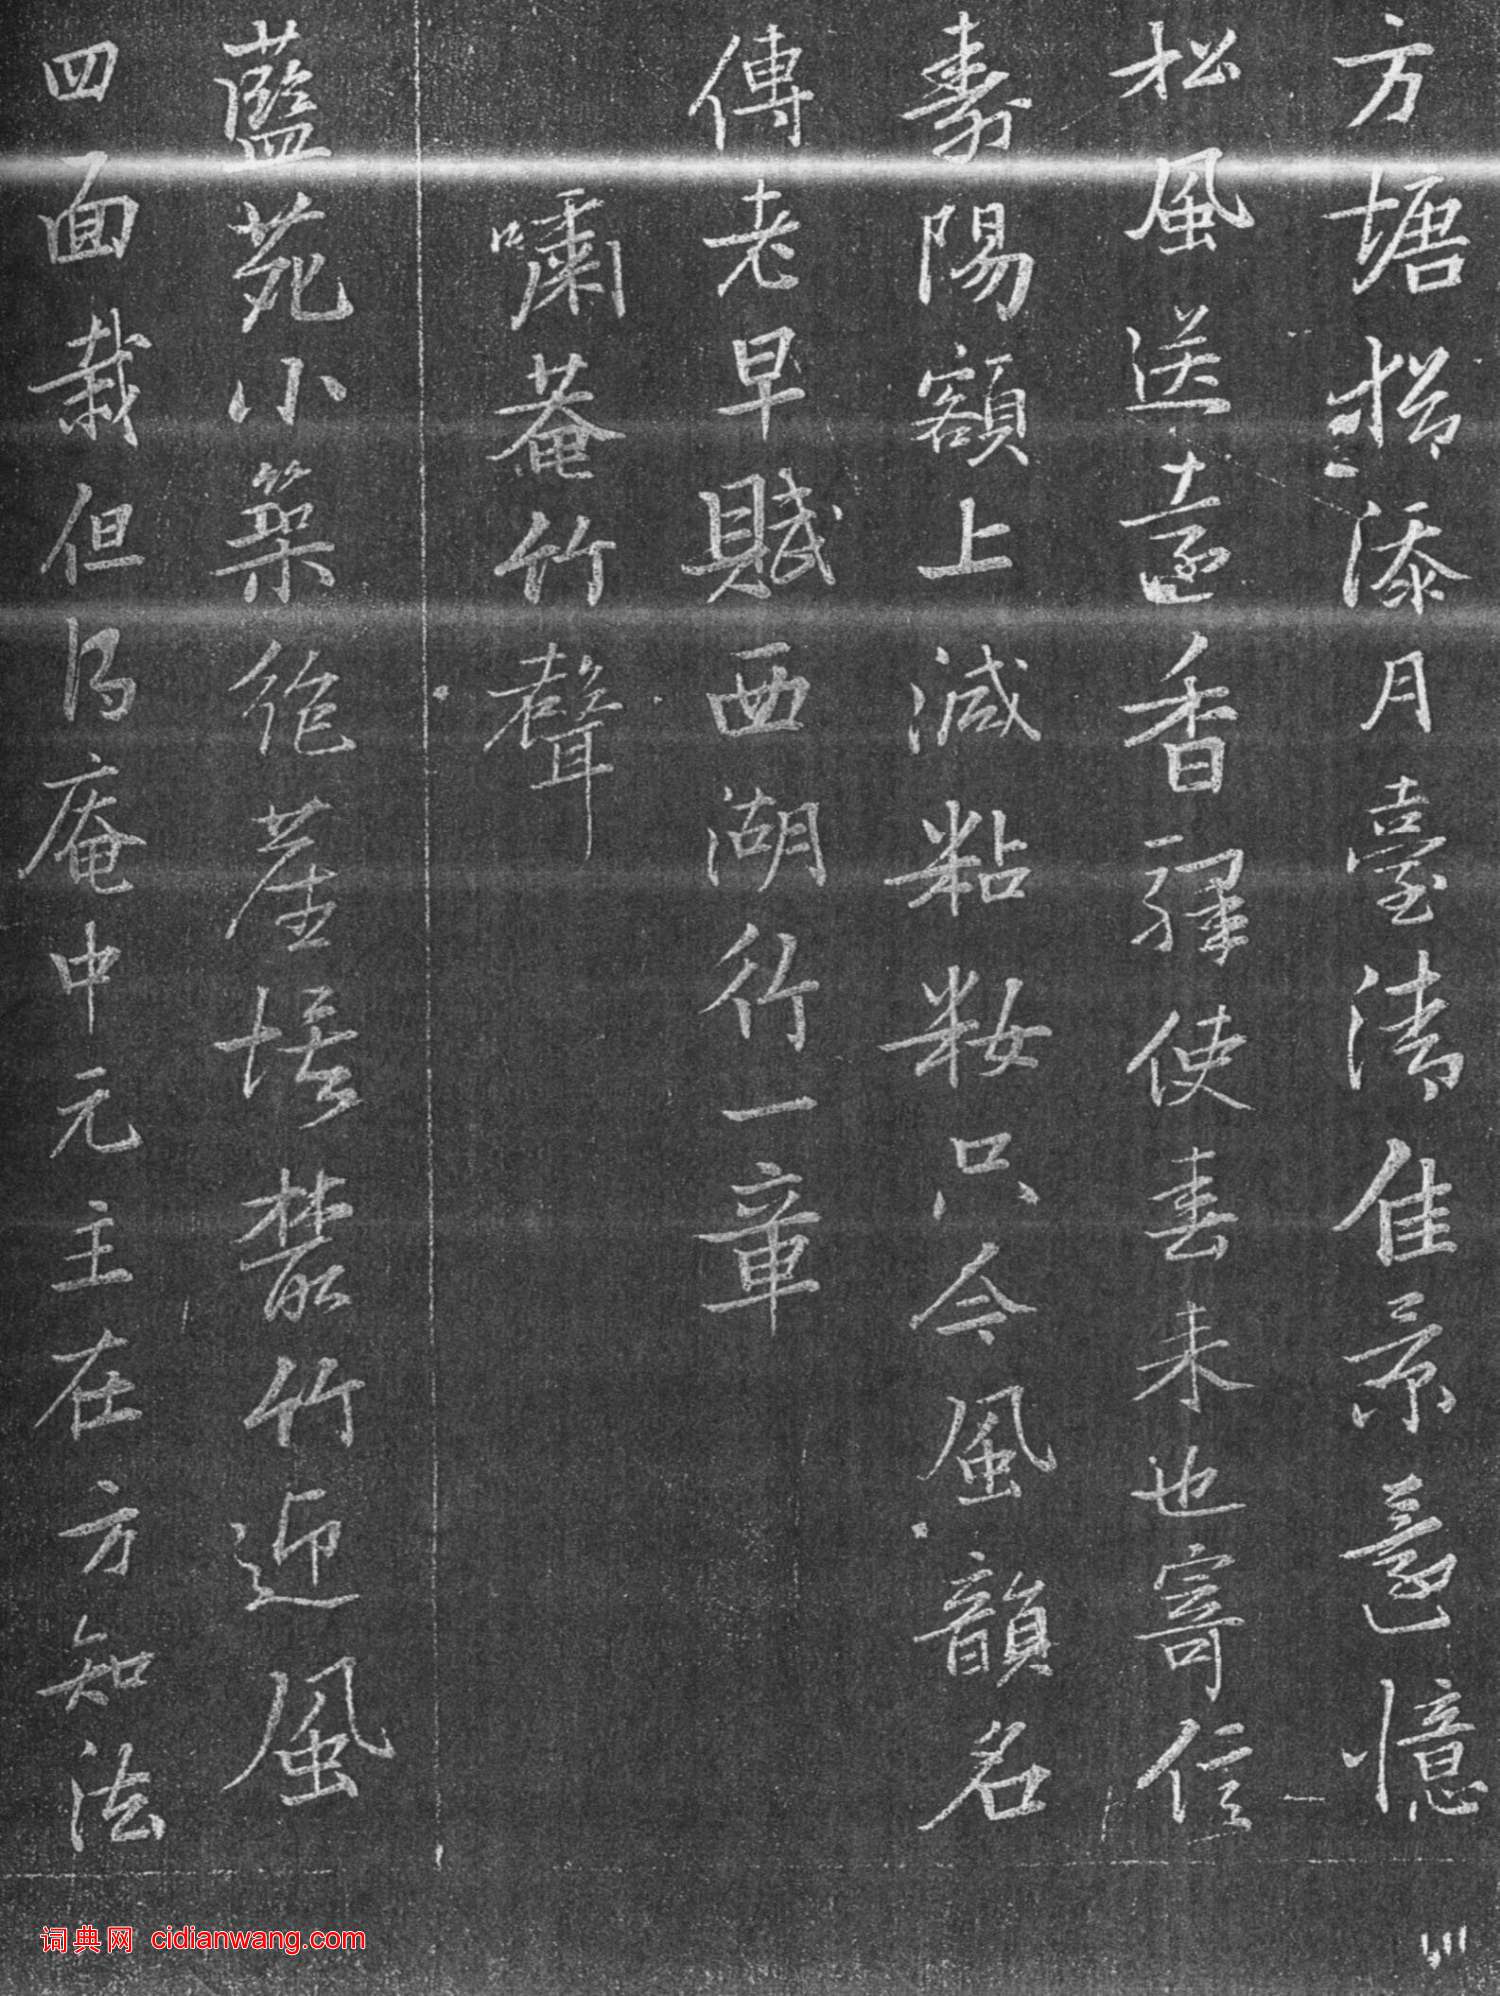 方塘撈添月臺清佳景遙憶
松風送遠香驛使春未也寄信
壽陽額上減粘妝只今風韻名
傳老早賦西湖行一章
嘯菴竹聲
藍苑小築絕塵埃叢竹迎風
四面栽但得庵中元主在方知法
词典网 cidianwang.com